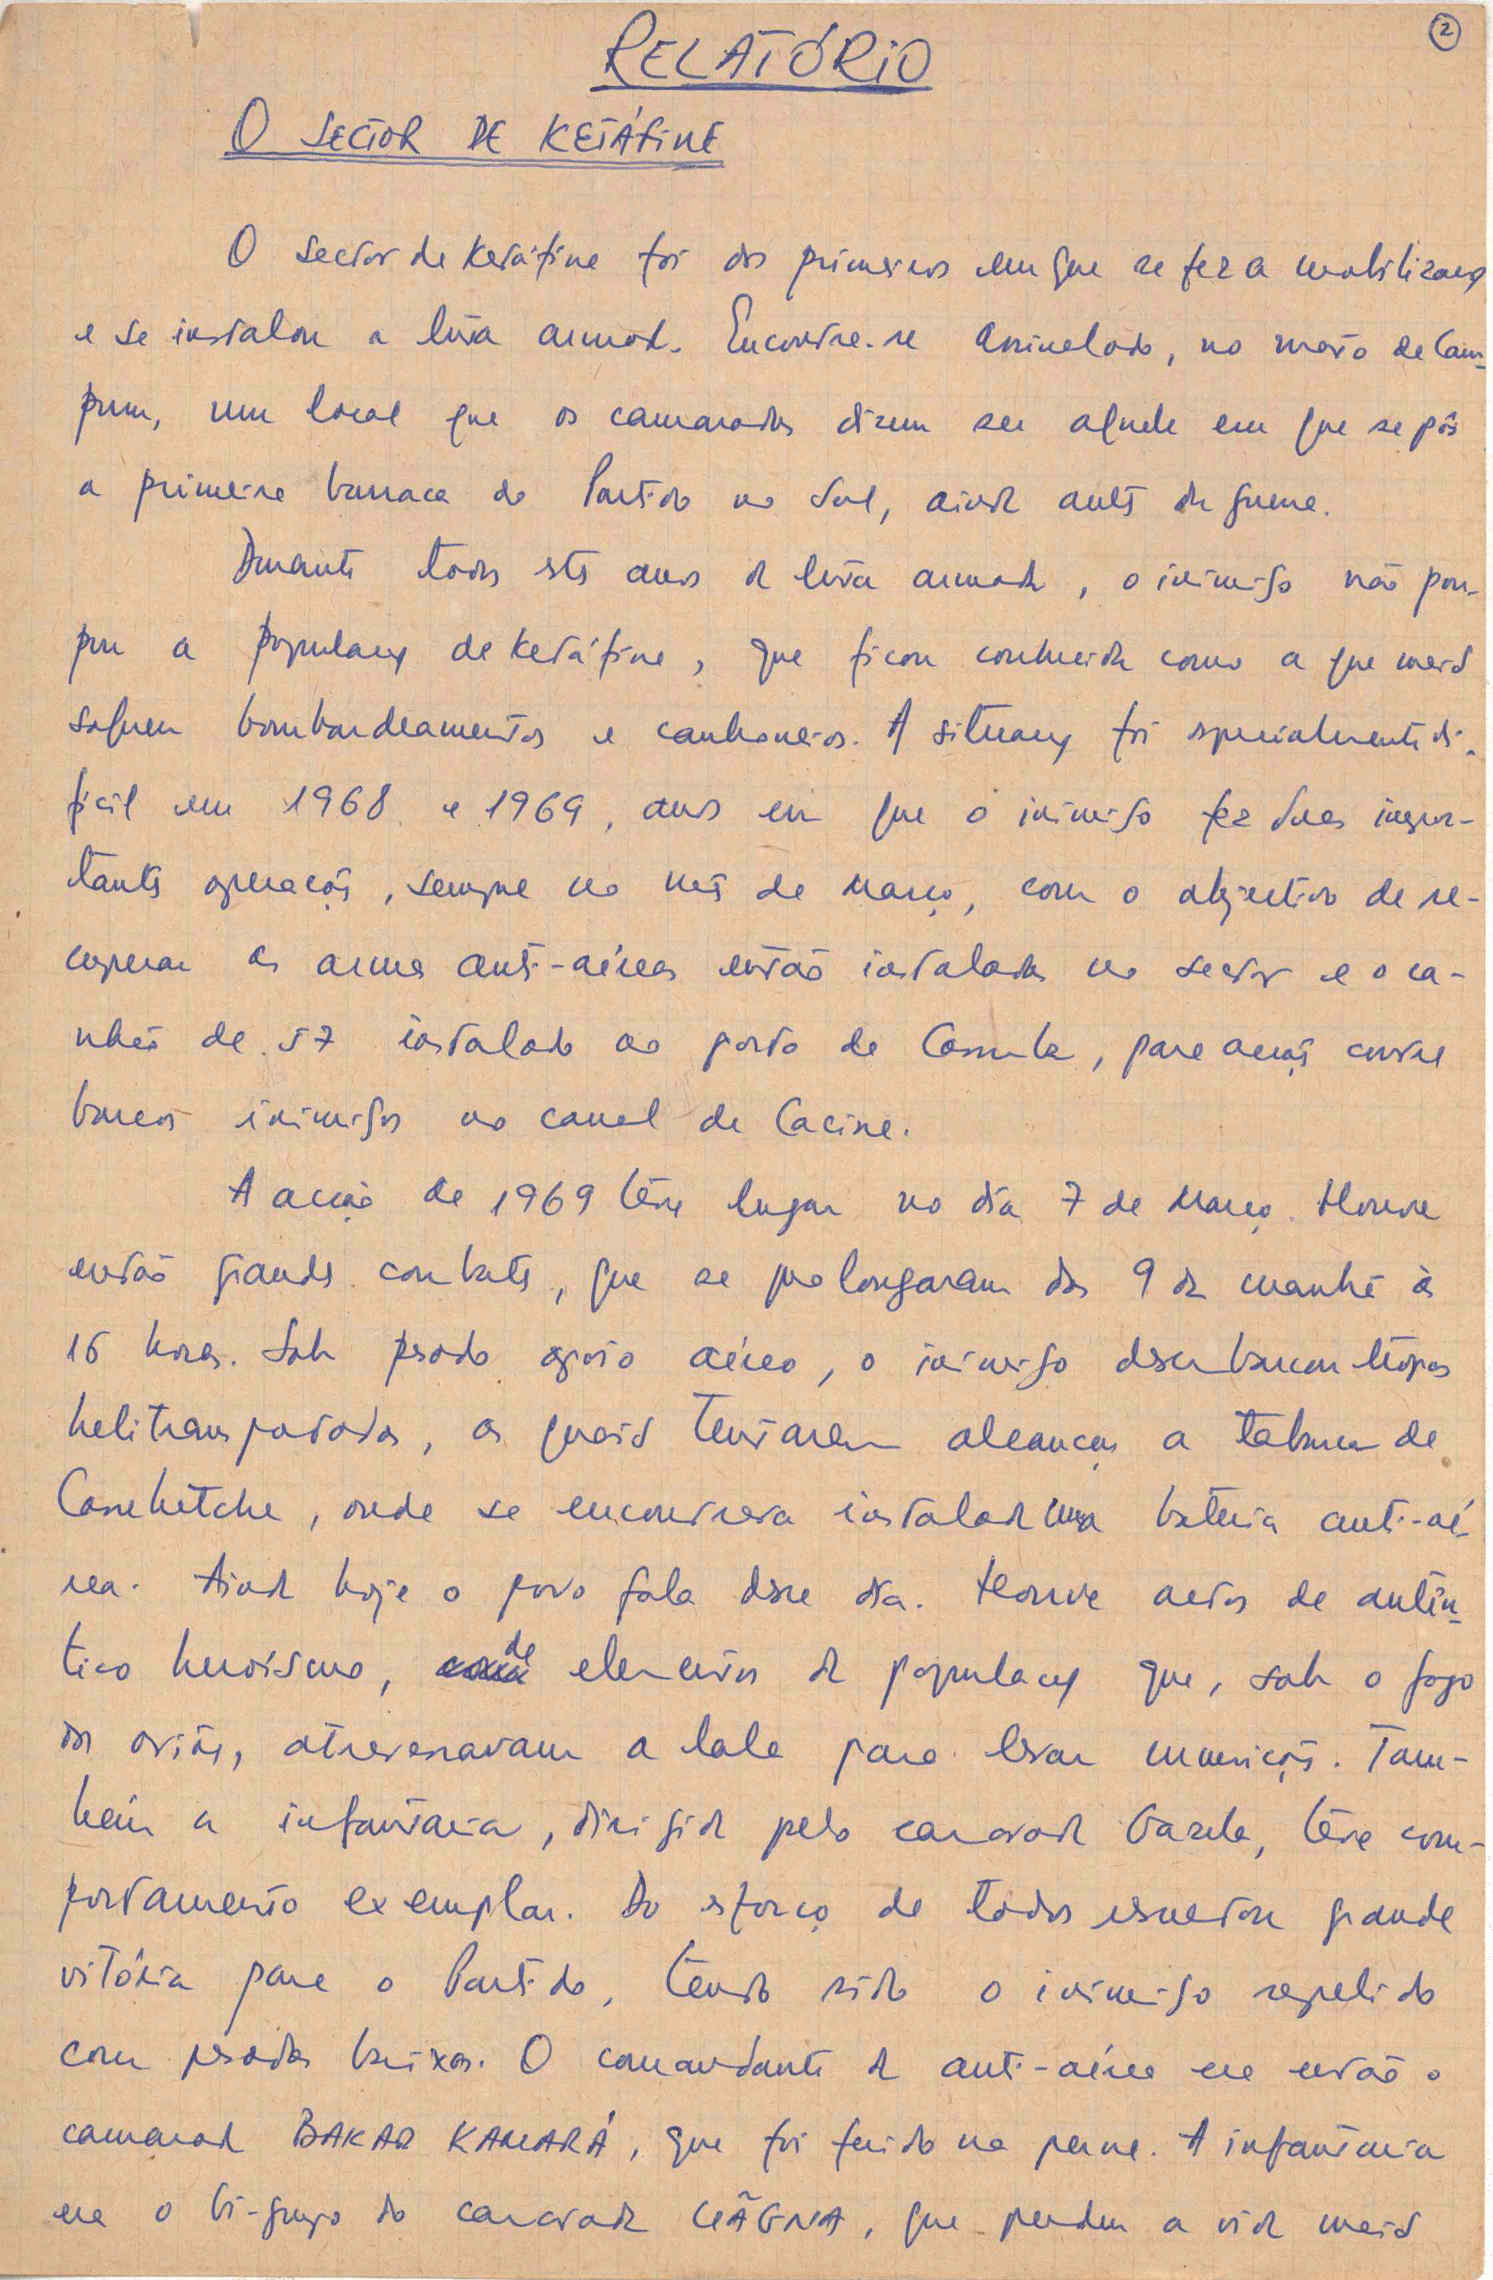 2
RELATÓRIO
O SECTOR DE KETÁFINE
O sector de Ketáfine foi dos primeiros em que se fez a mobilização
e se instalou a luta armada. Encontra-se assinalado, no mato de Cam-
pum, um local que os camaradas dizem ser aquele em que se pôs
a primeira barraca do Partido no Sul, ainda antes da guerra.
Durante todos estes anos de luta armada, o inimigo não pou-
pou a população de Ketáfine, que ficou conhecida como a que mais
sofreu bombardeamentos e canhoneios. A situação foi especialmente di-
fícil em 1968 e 1969, anos em que o inimigo fez duas impor-
tantes operações, sempre no mês de Março, com o objectivo de re-
cuperar as armas anti-aéreas então instaladas no sector e o ca-
nhão de 57 instalado no porto de Cassumba, para acções contra
barcos inimigos no canal de Cacine.
A acção de 1969 têve lugar no dia 7 de Março. Houve
então grandes combates, que se prolongaram das 9 da manhã às
16 horas. Sob pesado apoio aéreo, o inimigo desembarcou tropas
helitransportadas, as quais tentaram alcançar a tabanca de
, onde se encontrava instalada uma bateria anti-aé-
rea. Ainda hoje o povo fala desse dia. Houve actos de autên-
tico heroísmo, de elementos da população que, sob o fogo
dos aviões, atravessavam a lala para levar munições. Tam-
bém a infantaria, dirigida pelo camarada, têve com-
portamento exemplar. Do esforço de todos resultou grande
vitória para o Partido, tendo sido o inimigo repelido
com pesadas baixas. O comandante da anti-aérea era então o
camarada BAKAR KAMARÁ, que foi ferido na perna. A infantaria
era o bi-grupo do camarada, que perdeu a vida mais